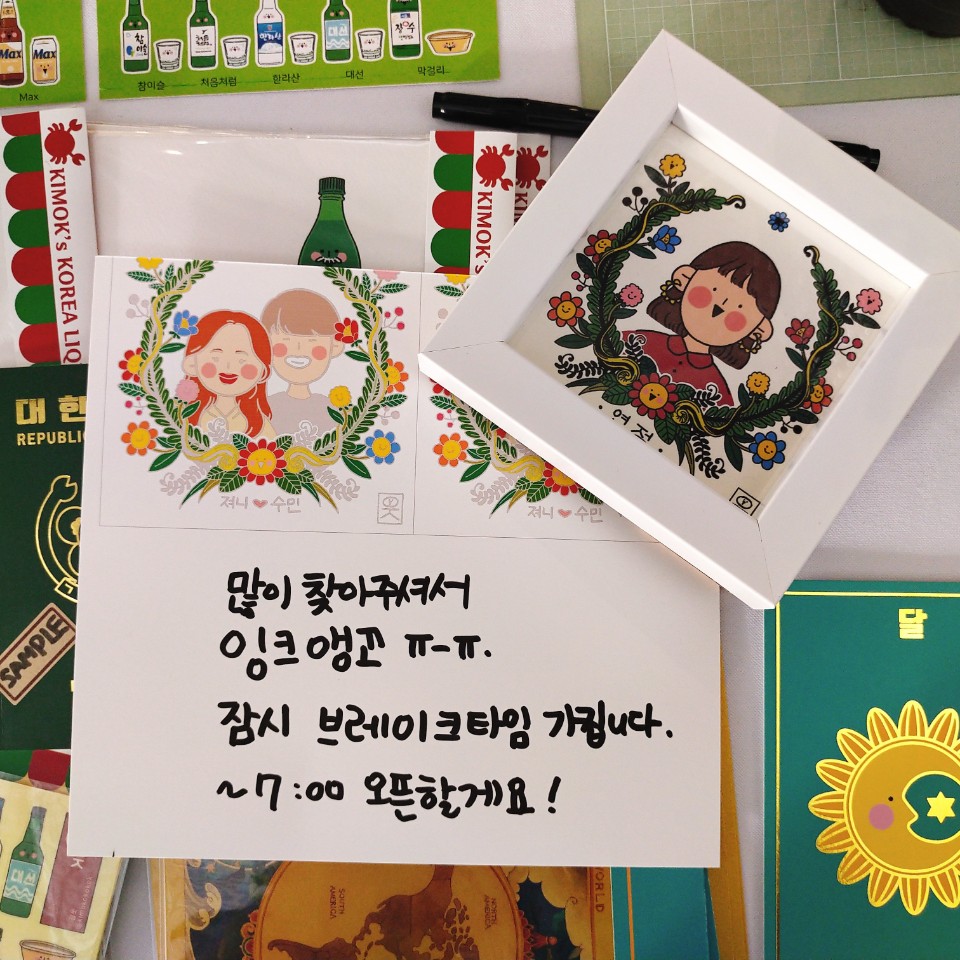 Max
Max
Max
참이슬
처음처럼
한라산
대선
막걸리
KIMOK's KOREA LIQ
KIMOK's
KIMOK's K
대 한
REPUBLIC
SAMPLE
여정
져니 ❤ 수민
져니 ❤ 수민
많이 찾아주셔서
잉크앵꼬 ㅠ-ㅠ.
잠시 브레이크타임 가집니다.
~7:00 오픈할게요!
달
대선
SOUTH AMERICA
NORTH AMERICA
WORLD